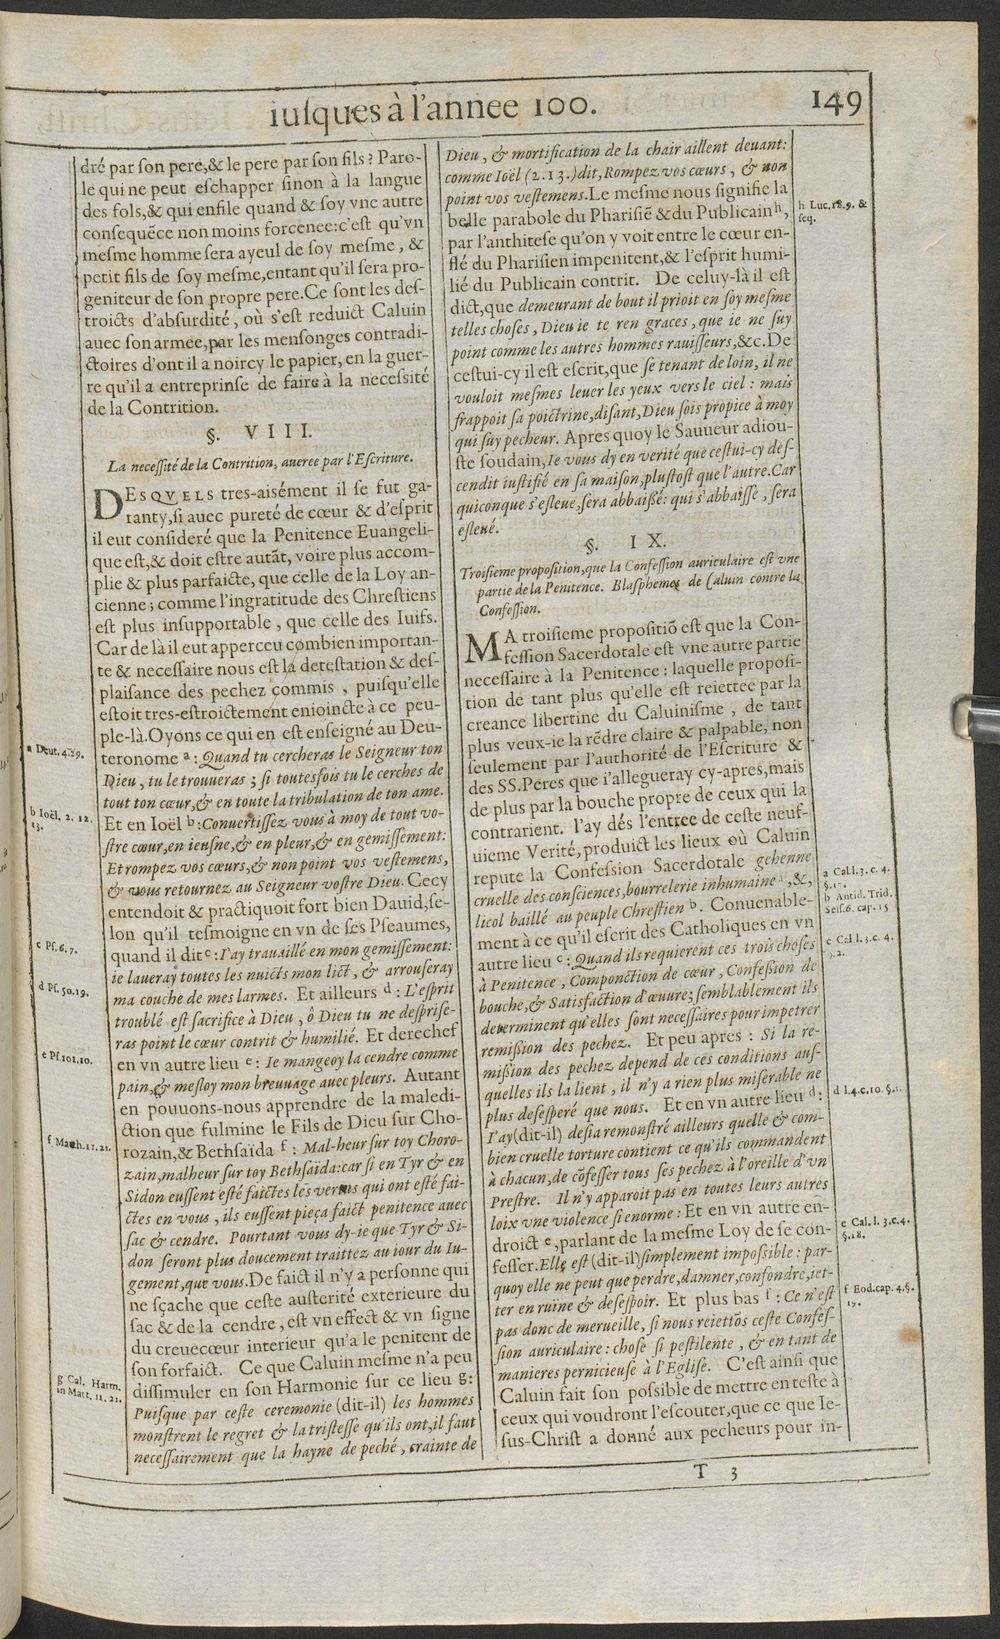 iuſques à l'annee 100. 149
dré par ſon pere,& le pere par ſon fils? Paro-
le qui ne peut eſchapper ſinon à la langue
des fols,& qui enfile quand & ſoy vne autre
conſequẽce non moins forcenee: c'eſt qu'vn
meſme homme ſera ayeul de ſoy meſme, &
petit fils de ſoy meſme,entant qu'il ſera pro-
geniteur de ſon propre pere.Ce ſont les deſ-
troicts d'abſurdité, où s'eſt reduict Caluin
auec ſon armee,par les menſonges contradi-
ctoires d'ont il a noircy le papier,en la guer-
re qu'il a entreprinſe de faire à la neceſſité
de la Contrition.
§. VIII.
La neceſſité de la Contrition, aueree par l'Eſcriture.
DESQVELS tres-aisément il ſe fut ga-
ranty,ſi auec pureté de cœur & d'eſprit
il eut conſideré que la Penitence Euangeli-
que eſt,& doit eſtre autãt, voire plus accom-
plie & plus parfaicte, que celle de la Loy an-
cienne; comme l'ingratitude des Chreſtiens
eſt plus inſupportable, que celle des Iuifs.
Car de là il eut apperceu combien importan-
te & neceſſaire nous eſt la deteſtation & deſ-
plaiſance des pechez commis, puiſqu'elle
eſtoit tres-eſtroictement enioincte à ce peu-
ple-là.Oyons ce qui en eſt enſeigné au Deu-
teronome a: Quand tu cercheras le Seigneur ton
Dieu, tu le trouueras; ſi toutesfois tu le cerches de
tout ton cœur,& en toute la tribulation de ton ame.
Et en Ioël b:Conuertiſſez vous à moy de tout vo-
ſtre cœur,en ieuſne,& en pleur,& en gemiſſement:
Et rompez vos cœurs,& non point vos veſtemens,
& vous retournez au Seigneur voſtre Dieu. Cecy
entendoit & practiquoit fort bien Dauid,ſe-
lon qu'il teſmoigne en vn de ſes Pſeaumes,
quand il dit c: I'ay trauaillé en mon gemiſſement:
ie laueray toutes les nuicts mon lict, & arrouſeray
ma couche de mes larmes. Et ailleurs d: L'eſprit
troublé eſt ſacrifice à Dieu, ô Dieu tu ne deſpriſe-
ras point le cœur contrit & humilié. Et derechef
en vn autre lieu e: Ie mangeoy la cendre comme
pain,& meſloy mon breuuage auec pleurs. Autant
en pouuons-nous apprendre de la maledi-
ction que fulmine le Fils de Dieu ſur Cho-
rozain,& Bethſaïda f: Mal-heur ſur toy Choro-
zain,malheur ſur toy Bethſaida:car ſi en Tyr & en
Sidon euſſent eſté faictes les vertus qui ont eſté fai-
ctes en vous, ils euſſent pieça faict penitence auec
ſac & cendre. Pourtant vous dy-ie que Tyr & Si-
don ſeront plus doucement traittez au iour du Iu-
gement,que vous.De faict il n'y a perſonne qui
ne ſçache que ceſte auſterité exterieure du
ſac & de la cendre, eſt vn effect & vn ſigne
du creuecœur interieur qu'a le penitent de
ſon forfaict. Ce que Caluin meſme n'a peu
diſſimuler en ſon Harmonie ſur ce lieu g:
Puiſque par ceſte ceremonie (dit-il) les hommes
monſtrent le regret & la triſteſſe qu'ils ont,il faut
neceſſairement que la hayne de peché, crainte de
a Deut. 4.29.
b Ioël, 2. 12.
13.
c Pſ. 6. 7.
d Pſ. 50.19.
e Pſ.101.10.
f Matth.11.21.
g Cal. Harm.
in Matt. 11. 21.
Dieu, & mortification de la chair aillent deuant:
comme Ioël (2.13.)dit,Rompez vos cœurs, & non
point vos veſtemens.Le meſme nous ſignifie la
belle parabole du Phariſiẽ & du Publicain h,
par l'antithese qu'on y voit entre le cœur en-
flé du Phariſien impenitent,& l'eſprit humi-
lié du Publicain contrit. De celuy-là il eſt
dict,que demeurant de bout il prioit en ſoy meſme
telles choſes, Dieu ie te ren graces, que ie ne ſuy
point comme les autres hommes rauiſſeurs,&c.De
ceſtui-cy il eſt eſcrit,que ſe tenant de loin, il ne
vouloit meſmes leuer les yeux vers le ciel: mais
frappoit ſa poictrine,diſant,Dieu ſois propice à moy
qui ſuy pecheur. Apres quoy le Sauueur adiou-
ſte ſoudain,Ie vous dy en verité que ceſtui-cy deſ-
cendit iuſtifié en ſa maiſon,pluſtoſt que l'autre.Car
quiconque s'eſleue,ſera abbaiſſé: qui s'abbaiſſe, ſera
eſleué.
§. IX.
Troiſieme propoſition,que la Confeſſion auriculaire eſt vne
partie de la Penitence. Blaſphemes de Caluin contre la
Confeſſion.
MA troiſieme propoſitiõ eſt que la Con-
feſſion Sacerdotale eſt vne autre partie
neceſſaire à la Penitence: laquelle propoſi-
tion de tant plus qu'elle eſt reiettee par la
creance libertine du Caluiniſme, de tant
plus veux-ie la rẽdre claire & palpable, non
ſeulement par l'authorité de l'Eſcriture &
des SS.Peres que i'allegueray cy-apres,mais
de plus par la bouche propre de ceux qui la
contrarient. I'ay dés l'entree de ceſte neuf-
uieme Verité, produict les lieux où Caluin
repute la Confeſſion Sacerdotale gehenne
cruelle des conſciences,bourrelerie inhumaine a,&,
licol baillé au peuple Chreſtien b. Conuenable-
ment à ce qu'il eſcrit des Catholiques en vn
autre lieu c: Quand ils requierent ces trois choſes
à Penitence, Componction de cœur, Confeſſion de
bouche,& Satisfaction d'œuure; ſemblablement ils
determinent qu'elles ſont neceſſaires pour impetrer
remiſſion des pechez. Et peu apres: Si la re-
miſſion des pechez depend de ces conditions auſ-
quelles ils la lient, il n'y a rien plus miſerable ne
plus deſeſperé que nous. Et en vn autre lieu d:
I'ay(dit-il) deſia remonſtré ailleurs quelle & com-
bien cruelle torture contient ce qu'ils commandent
à chacun,de cõfeſſer tous ſes pechez à l'oreille d'vn
Preſtre. Il n'y apparoit pas en toutes leurs autres
loix vne violence ſi enorme: Et en vn autre en-
droict e,parlant de la meſme Loy de ſe con-
feſſer.Elle eſt (dit-il)ſimplement impoſſible: par-
quoy elle ne peut que perdre,damner,confondre,iet-
ter en ruine & deſeſpoir. Et plus bas f: Ce n'eſt
pas donc de merueille, ſi nous reiettõs ceſte Confeſ-
ſion auriculaire: choſe ſi peſtilente, & en tant de
manieres pernicieuſe à l'Egliſe. C'eſt ainſi que
Caluin fait ſon poſſible de mettre en teſte à
ceux qui voudront l'eſcouter,que ce que Ie-
ſus-Chriſt a donné aux pecheurs pour in-
h Luc.18.9. &
ſeq.
a Cal.l.3. c. 4.
§.17.
b Antid. Trid.
Seſſ.6. cap. 15
c Cal.l.3.c. 4.
§.2.
d l.4.c.10. §.1.
e Cal. l. 3.c.4.
§.18.
f Eod.cap.4.§.
19.
T 3